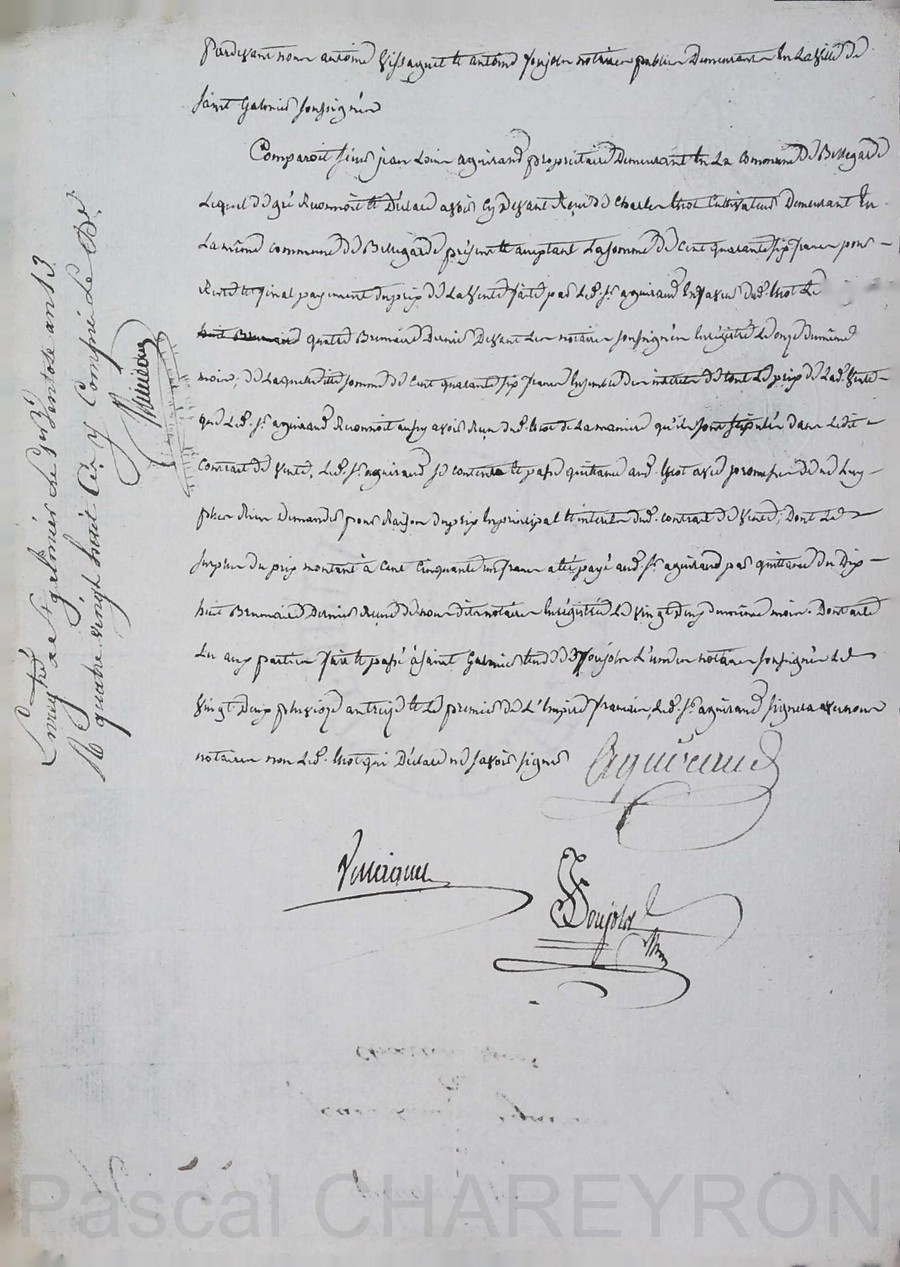 Pardevant nous antoine Vissaguet et antoine Poujolx notaires publics Demeurants En La Ville de
saint Galmier soussignés
Comparoit sieur jean Louis aguiraud propriétaire Demeurant En La Commune De Bellegarde
Lequel de gré Reconnoit et Déclare avoir Cy Devant Reçu de Charles Cultivateur Demeurant En
La même commune de Bellegarde présent et acceptant La somme de Cent quarante six francs pour
Reste et final payement du prix de La Vente faite par Led. Sr. aguiraud En faveur dud. Le
quatre Brumaire Dernier Devant Les notaires soussignés Enregistrée Le onze du même
mois, de Laquelle ditte somme de Cent quarante six francs Ensemble des interets de tout Le prix de Lad. Vente
que Led. Sr. aguiraud Reconnoit aussy avoir Reçu dud. de La maniere qu'ils sont stipulés dans Ledit
Contrait de Vente, Led. Sr. aguiraud se contente et passe quittance aud. avec promesse de ne Luy
plus Rien Demander pour Raison du prix En principal et interets dud. contrait de Vente, Dont Le
surplus du prix montant à Cent Cinquante un francs a été payé aud. Sr. aguiraud par quittance du Dix
huit Brumaire Dernier Reçue de nous dits notaires Enregistrée Le Vingt Deux du même mois. Dont acte
Lu aux parties fait et passé à saint Galmier Etude de Poujolx L'un des notaires soussignés Le
Vingt Deux pluviose an treize et Le premier de L'Empire français, Led. Sr. aguiraud signera avec nous
notaires non Led. qui Déclare ne savoir signer
Aguiraud
Vissaguet
Poujolx
Enregistré a St galmier le ventose an 13.
R. quatre vingt huit C.es y Compris Le De.
Pascal CHAREYRON